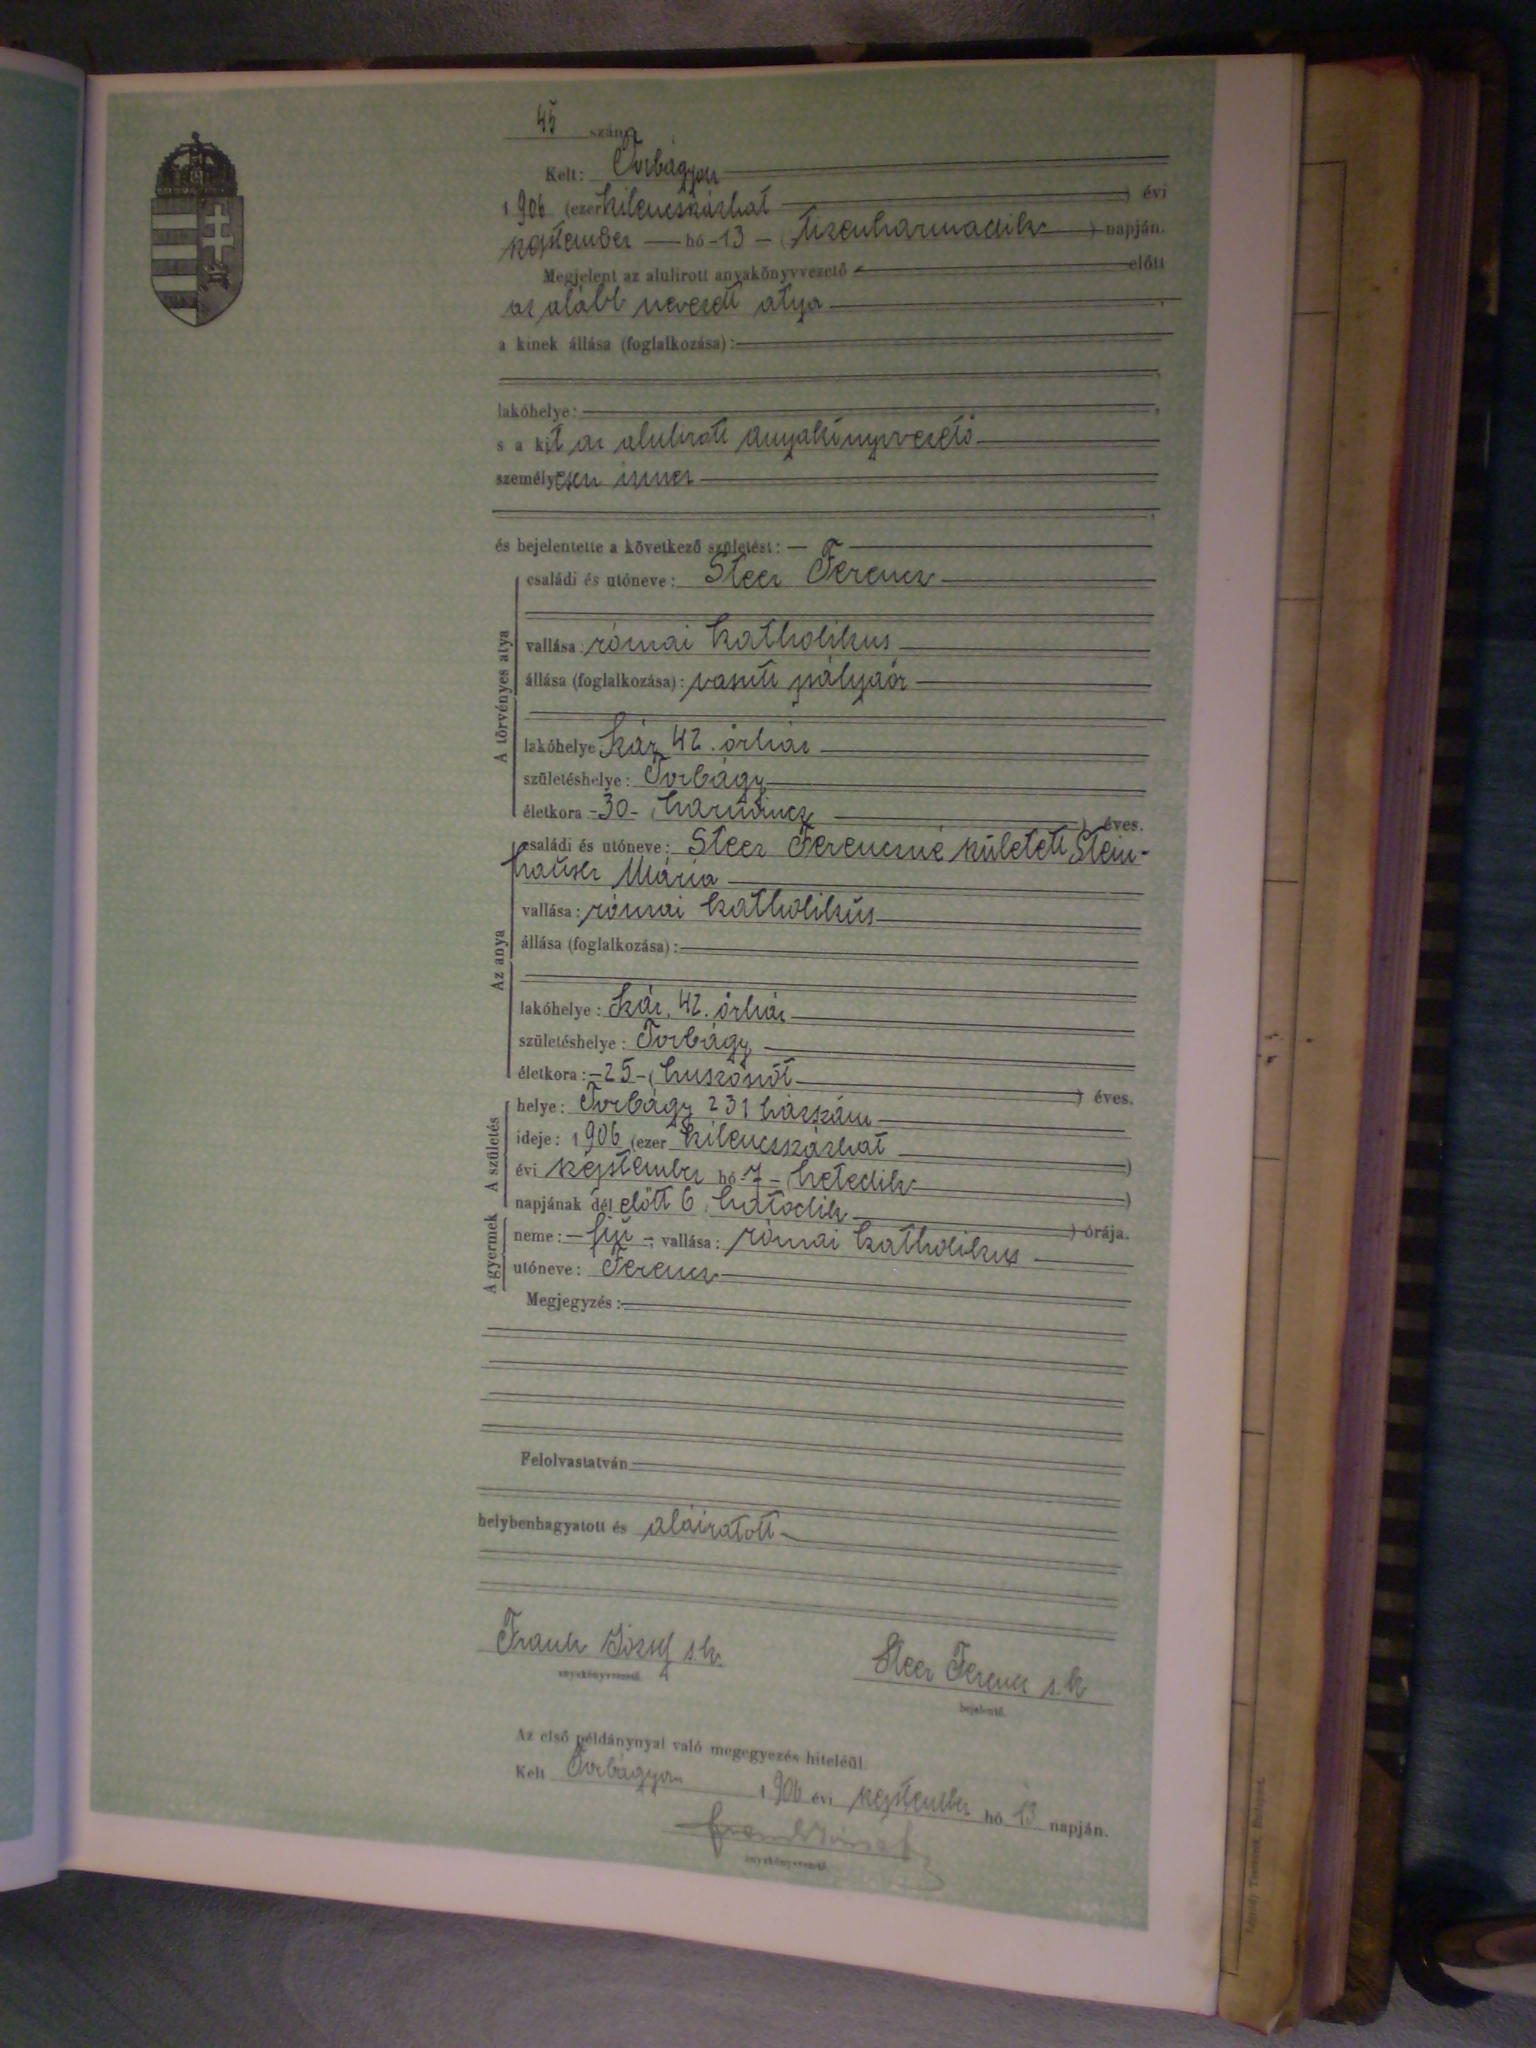 45 szám
Kelt: Torbágyon
1906 (ezer kilencszázhat ) évi
szeptember hó -13- (tizenharmadik ) napján.
Megjelent az alulirott anyakönyvvezető előtt
az alább nevezett atya
a kinek állása (foglalkozása):
lakóhelye:
s a kit az alulirott anyakönyvvezető
személyesen ismer
és bejelentette a következő születést: —
A törvényes atya
családi és utóneve: Steer Ferencz
vallása: római katholikus
állása (foglalkozása): vasuti pályaőr
lakóhelye 42. őrház
születéshelye: Torbágy
életkora -30- (harmincz ) éves.
Az anya
családi és utóneve: Steer Ferenczné született Stein-
hauser Mária
vallása: római katholikus
állása (foglalkozása):
lakóhelye: 42. őrház
születéshelye: Torbágy
életkora: -25- (huszonöt ) éves.
A születés
helye: Torbágy 231 házszám
ideje: 1906 (ezer kilencszázhat )
évi szeptember hó -7- (hetedik )
napjának dél előtt 6 (hatodik ) órája.
A gyermek
neme: - fiu -; vallása: római katholikus
utóneve: Ferencz
Megjegyzés:
Felolvastatván
helybenhagyatott és aláiratott
Frank József s.k. Steer Ferencz s.k
anyakönyvvezető. bejelentő.
Az első példánynyal való megegyezés hiteléül.
Kelt Torbágyon 1906 évi szeptember hó 13 napján.
Frank József
anyakönyvvezető.